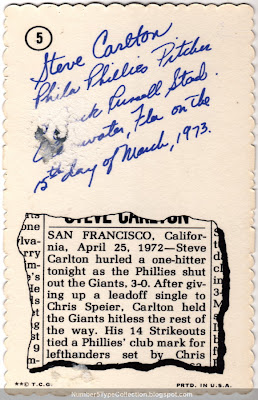 5
Steve Carlton
Phila Phillies Pitcher
Russell Stad.
Fla on the
15th day of March, 1973.
STEVE CARLTON
SAN FRANCISCO, Califor-
nia, April 25, 1972—Steve
Carlton hurled a one-hitter
tonight as the Phillies shut
out the Giants, 3-0. After giv-
ing up a leadoff single to
Chris Speier, Carlton held
the Giants hitless the rest of
the way. His 14 Strikeouts
tied a Phillies' club mark for
lefthanders set by Chris
**© T.C.G. PRTD. IN U.S.A.
Number5TypeCollection.blogspot.com